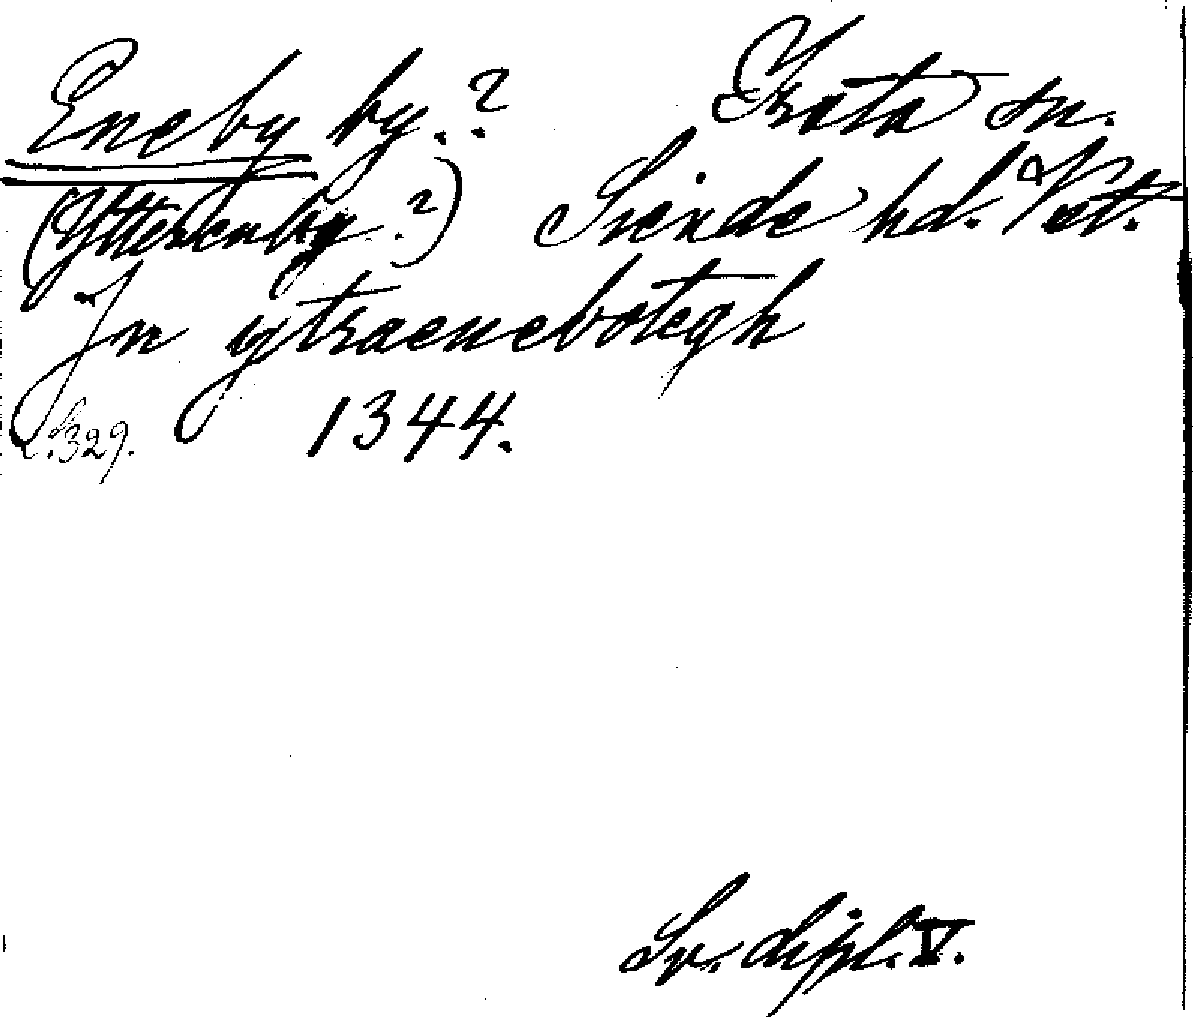 Eneby by.? Irsta sn.
(Ytterenby.?) Siende hd. Vstm.
Jn ytraenebotegh
S.329. 1344.
Sv. dipl. V.